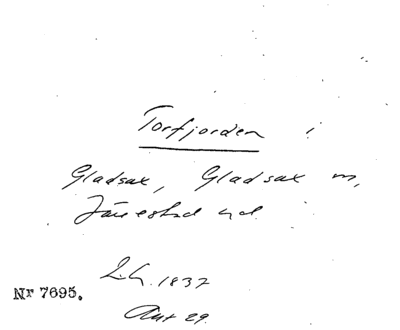 Torfjorden i
Gladsax, Gladsax m,
Järrestad hd.
L.G. 1837
Nr 7695.
Akt 29.